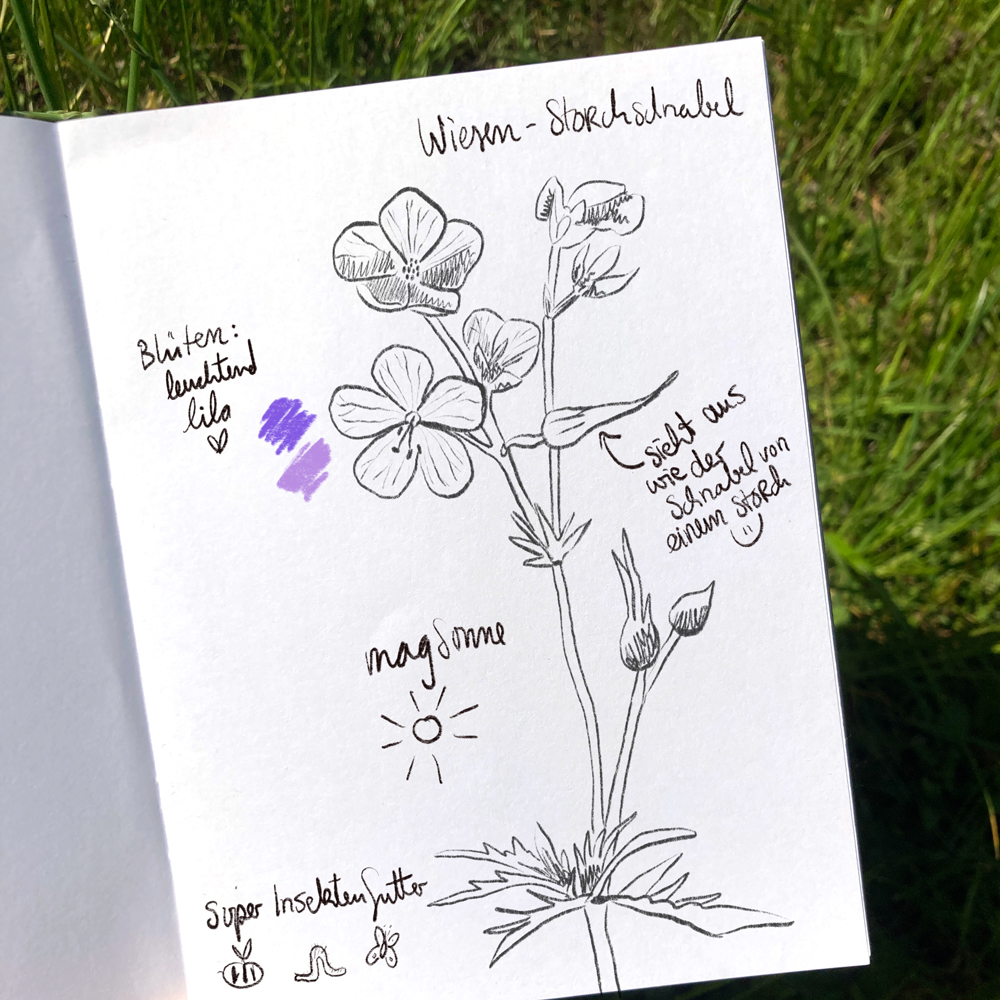 Wiesen-Storchschnabel
Blüten:
leuchtend
lila
sieht aus
wie der
Schnabel von
einem Storch
mag Sonne
Super Insektenfutter